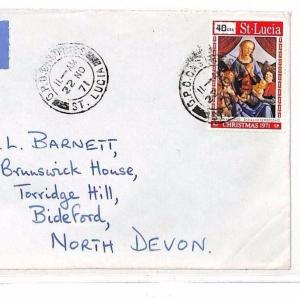 G.P.O. CASTRIES
11-AM
22 NO
71
ST. LUCIA
G.P.O. CAS
11-
22
40cts
St. Lucia
CHRISTMAS 1971
L. BARNETT,
Brunswick House,
Torridge Hill,
Bideford,
NORTH DEVON.